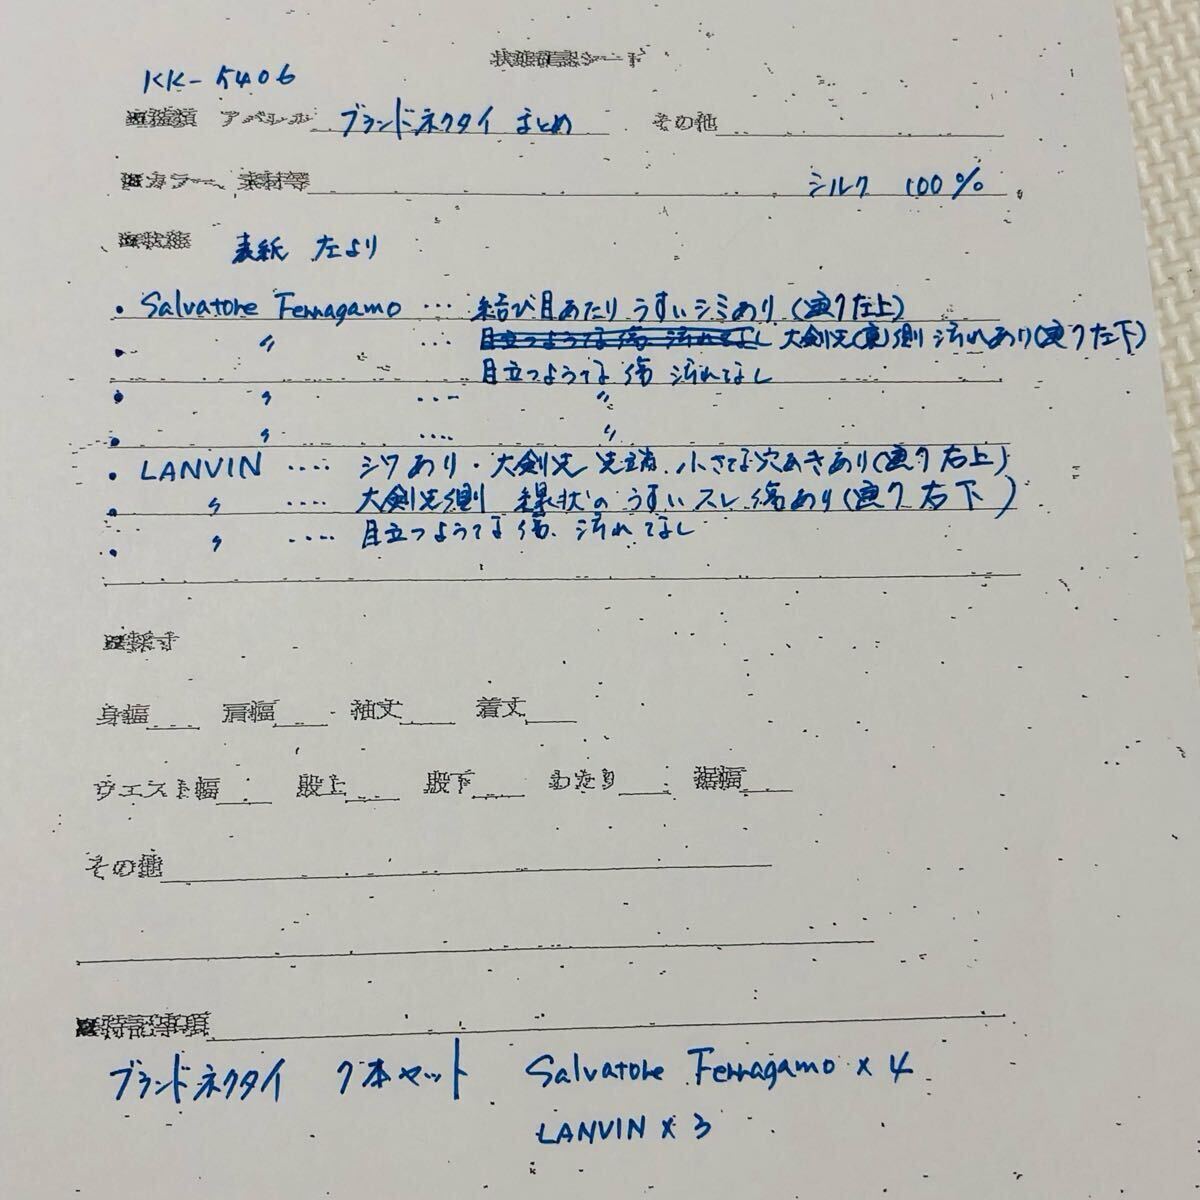 状態確認シート
KK-5406
※種類 アパレル ブランドネクタイ まとめ その他
※カラー、素材等 シルク 100%
※状態 表紙 左より
・Salvatore Ferragamo … 結び目あたり うすいシミあり(直り左上)
・ 〃 … 目立つような傷 汚れなし 大剣先(裏)側 汚れあり(直り左下)
目立つような傷 汚れなし
・ 〃 …. 〃
・ 〃 …. 〃
・LANVIN …. シワあり・大剣先 先端 小さな穴あきあり(直り右上)
・ 〃 …. 大剣先側 線状のうすいスレ傷あり(直り右下)
・ 〃 …. 目立つような傷、汚れなし
※採寸
身幅 肩幅 袖丈 着丈
ウエスト幅 股上 股下 わたり 裾幅
その他
※特記事項
ブランドネクタイ 7本セット Salvatore Ferragamo x 4
LANVIN x 3